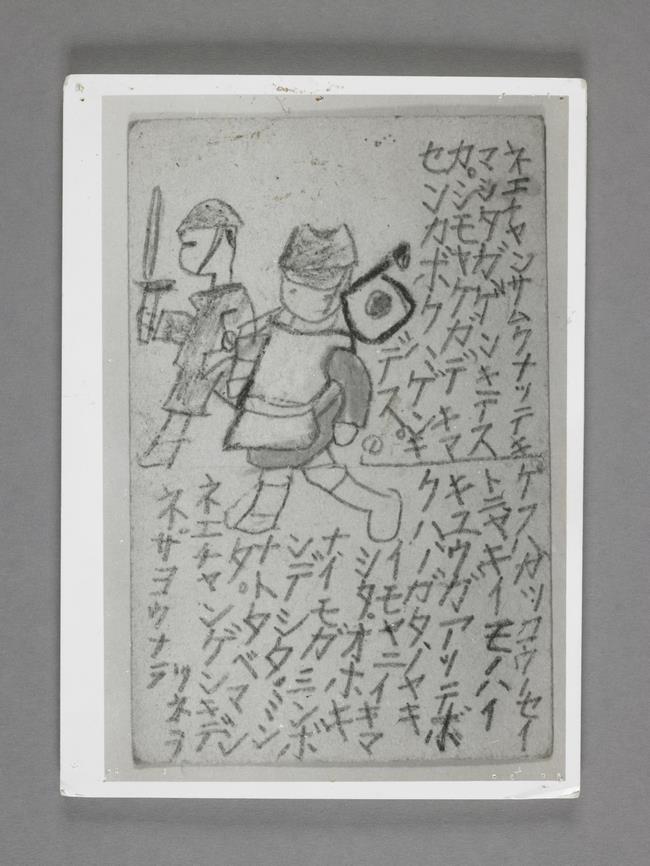 ネエチャンサムウナッテキ
マシタガゲンキデス
カ。シモヤケガデキマ
センカボクハゲンキ
デス。
ケフハガッコウノセイ
トニヤキイモノハイ
キユウガアッテボ
クハバガタノヤキ
イモヤニイキマ
シタ。オホキ
ナイモガ
ンデシタ。ミン
ナトタベマシ
タ。
ネエチャンゲンキデ
ネ。サヨウナラ